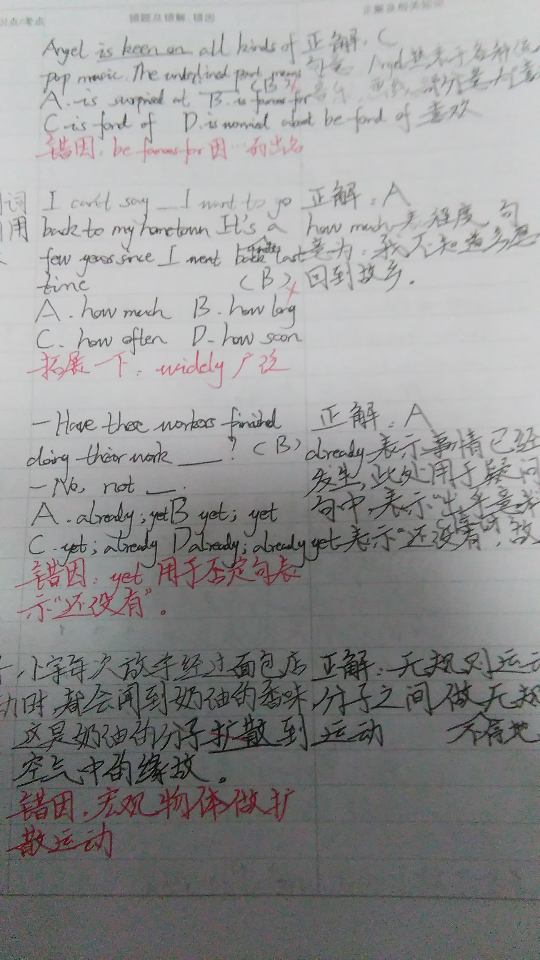 识点/考点 错题及错解、错因 正解及相关知识
Angel is keen on all kinds of 正解:C
pop music. The underlined part means 句意 Angel
(B)
A. is surprised at B. is famous for
C. is fond of D. is worried about be fond of 喜欢
错因:be famous for 因…而出名
词 I can't say __ I want to go 正解:A
用 back to my hometown. It's a how much 表程度 句
few years since I went back last 意为:我不知道多想
time (B) 回到故乡.
A. how much B. how long
C. how often D. how soon
拓展一下:widely 广泛
-Have these workers finished 正解:A
doing their work __? (B) already 表示事情已经
-No, not __. 发生,此处用于疑问
A. already; yet B yet; yet 句中,表示"出乎意料
C. yet; already D already; already yet 表示"还没有",故
错因:yet 用于否定句表
示"还没有"。
小宇每次放学经过面包店 正解:无规则运
动时,都会闻到奶油的香味, 分子之间做无规
这是奶油的分子扩散到 运动
空气中的缘故。
错因:宏观物体做扩
散运动